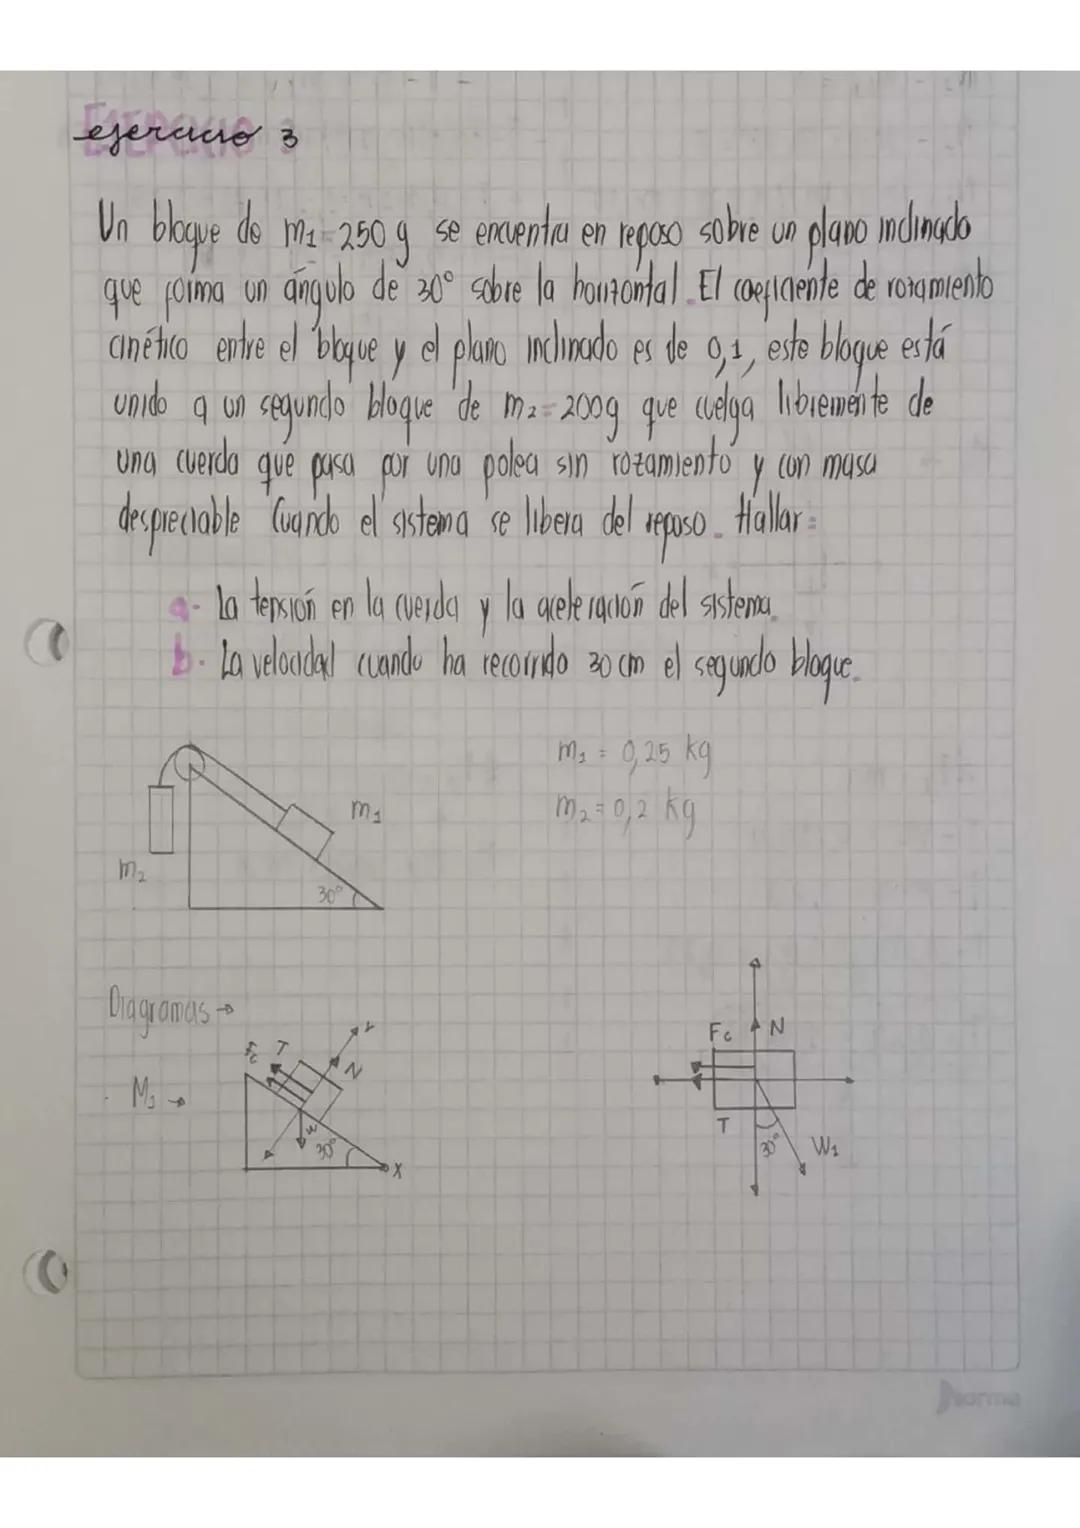 ejercicio 3
Un bloque de m1 = 250 g se encuentra en reposo sobre un plano inclinado
que forma un ángulo de 30° sobre la horizontal. El coeficiente de rozamiento
cinético entre el bloque y el plano inclinado es de 0,1, este bloque está
unido a un segundo bloque de m2 = 200g que cuelga libremente de
una cuerda que pasa por una polea sin rozamiento y con masa
despreciable Cuando el sistema se libera del reposo. Hallar:
a. La tensión en la cuerda y la aceleración del sistema.
b. La velocidad cuando ha recorrido 30 cm el segundo bloque.
m1 = 0,25 kg
m2 = 0,2 kg
m1
m2
30°
Diagramas →
M1 →
Fc T N Y
W 30° X
Fc N
T 30° W1
norma